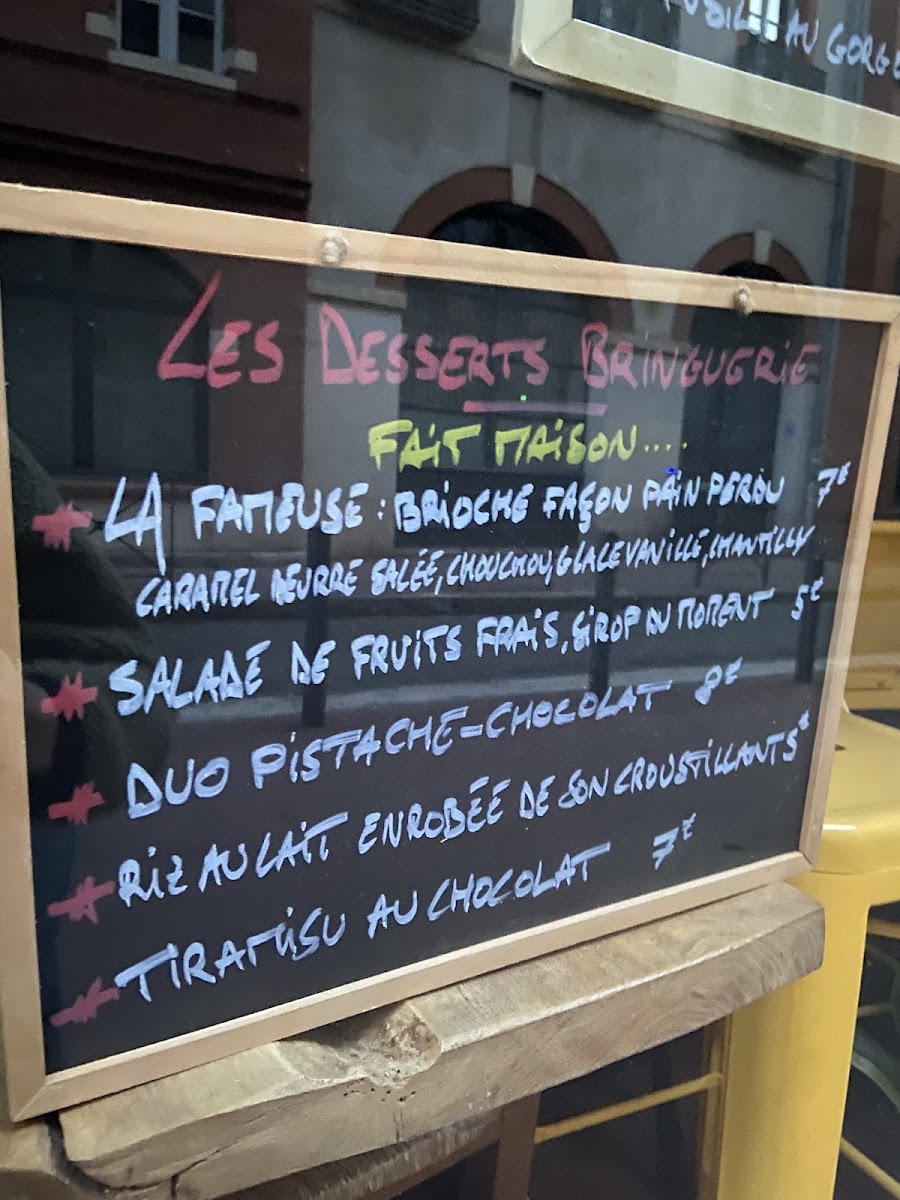 AU GORG
LES DESSERTS BRINGUERIE
FAIT MAISON....
LA FAMEUSE : BRIOCHE FAÇON PAIN PERDU 7€
CARAMEL BEURRE SALÉE, CHOUCHOU, GLACE VANILLE, CHANTILLY
SALADE DE FRUITS FRAIS, SIROP DU MOMENT 5€
DUO PISTACHE-CHOCOLAT 8€
RIZ AU LAIT ENROBÉE DE SON CROUSTILLANT 5€
TIRAMISU AU CHOCOLAT 7€